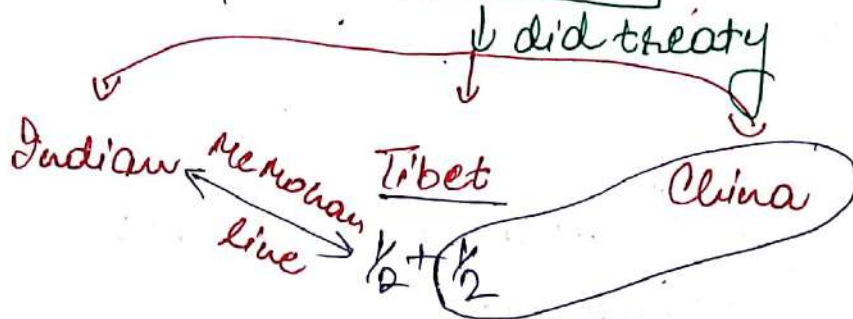 did treaty
Indian McMohan Tibet China
line 1/2 + 1/2